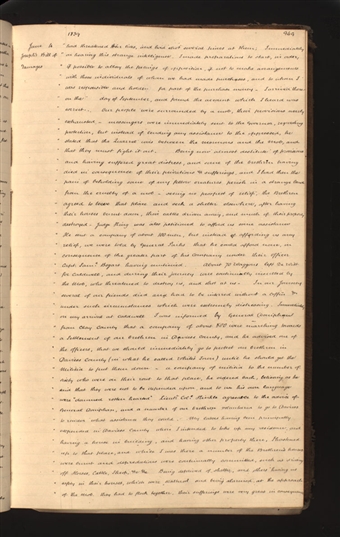 1839 944
June 4 " had threatened their lives, and had shot several times at them; Immediately
Joseph's Bill of " on hearing this strange intelligence, I made preparations to start, in order,
Damages " if possible to allay the feelings of opposition, if not to make arrangements
" with those individuals of whom we had made purchases, and to whom I
" was responsible and holden for part of the purchase money. I arrived there
" on the day of September, and found the account which I heard was
" correct. Our people were surrounded by a mob, their provisions nearly
" exhausted messengers were immediately sent to the Governor, requesting
" protection, but instead of lending any assistance to the oppressed, he
" stated that the quarrel was between the mormons and the mob, and
" that they must fight it out. Being now almost destitute of provisions
" and having suffered great distress, and some of the brethren having
" died in consequence of their privations & sufferings, and I had then the
" pain of beholding some of my fellow creatures perish in a strange land
" from the cruelty of a mob, seeing no prospect of relief, the Brethren
" agreed to leave that place, and seek a shelter elsewhere, after having
" their houses burnt down, their cattle driven away, and much of their property
" destroyed. Judge King was also petitioned to afford us some assistance
" He sent a company of about 100 men, but instead of affording us any
" relief, we were told by General Parks that he could afford none, in
" consequence of the greater part of his Company under their officer
" Capt. Saml Bogart having mutinied. About 70 Waggons left De Witt
" for Caldwell, and during their journey were continually insulted by
" the Mob, who threatened to destroy us, and shot at us. In our journey
" several of our friends died and had to be interred without a coffin
" under such circumstances which were extremely distressing. Immediately
" on my arrival at Caldwell I was informed by General Doniphan
" from Clay County that a company of about 800 were marching towards
" a settlement of our brethren in Daviess County, and he advised one of
" the officers, that we should immediately go to protect our brethren in
" Daviess County (in what he called Wight's Town) until he should get the
" Militia to put them down. a company of militia to the number of
" sixty who were on their rout to that place, he ordered back, believing as he
" said that they were not to be depended upon and to use his own language
" were "damned rotten hearted" Lieut. Col. Hinkle agreeable to the advice of
" General Doniphan, and a number of our brethren volunteered to go to Daviess
" to render what assistance they could. My labors having been principally
" expended in Daviess County where I intended to take up my residence, and
" having a house in building, and having other property there, I hastened
" up to that place, and while I was there a number of the Brethren's houses
" were burnt and depredations were continually committed, such as driving
" off Horses, Cattle, Sheep, &c &c. Being deprived of shelter, and others having no
" safety in their houses, which were scattered, and being alarmed at the approach
" of the mob they had to flock together, their sufferings were very great in consequence